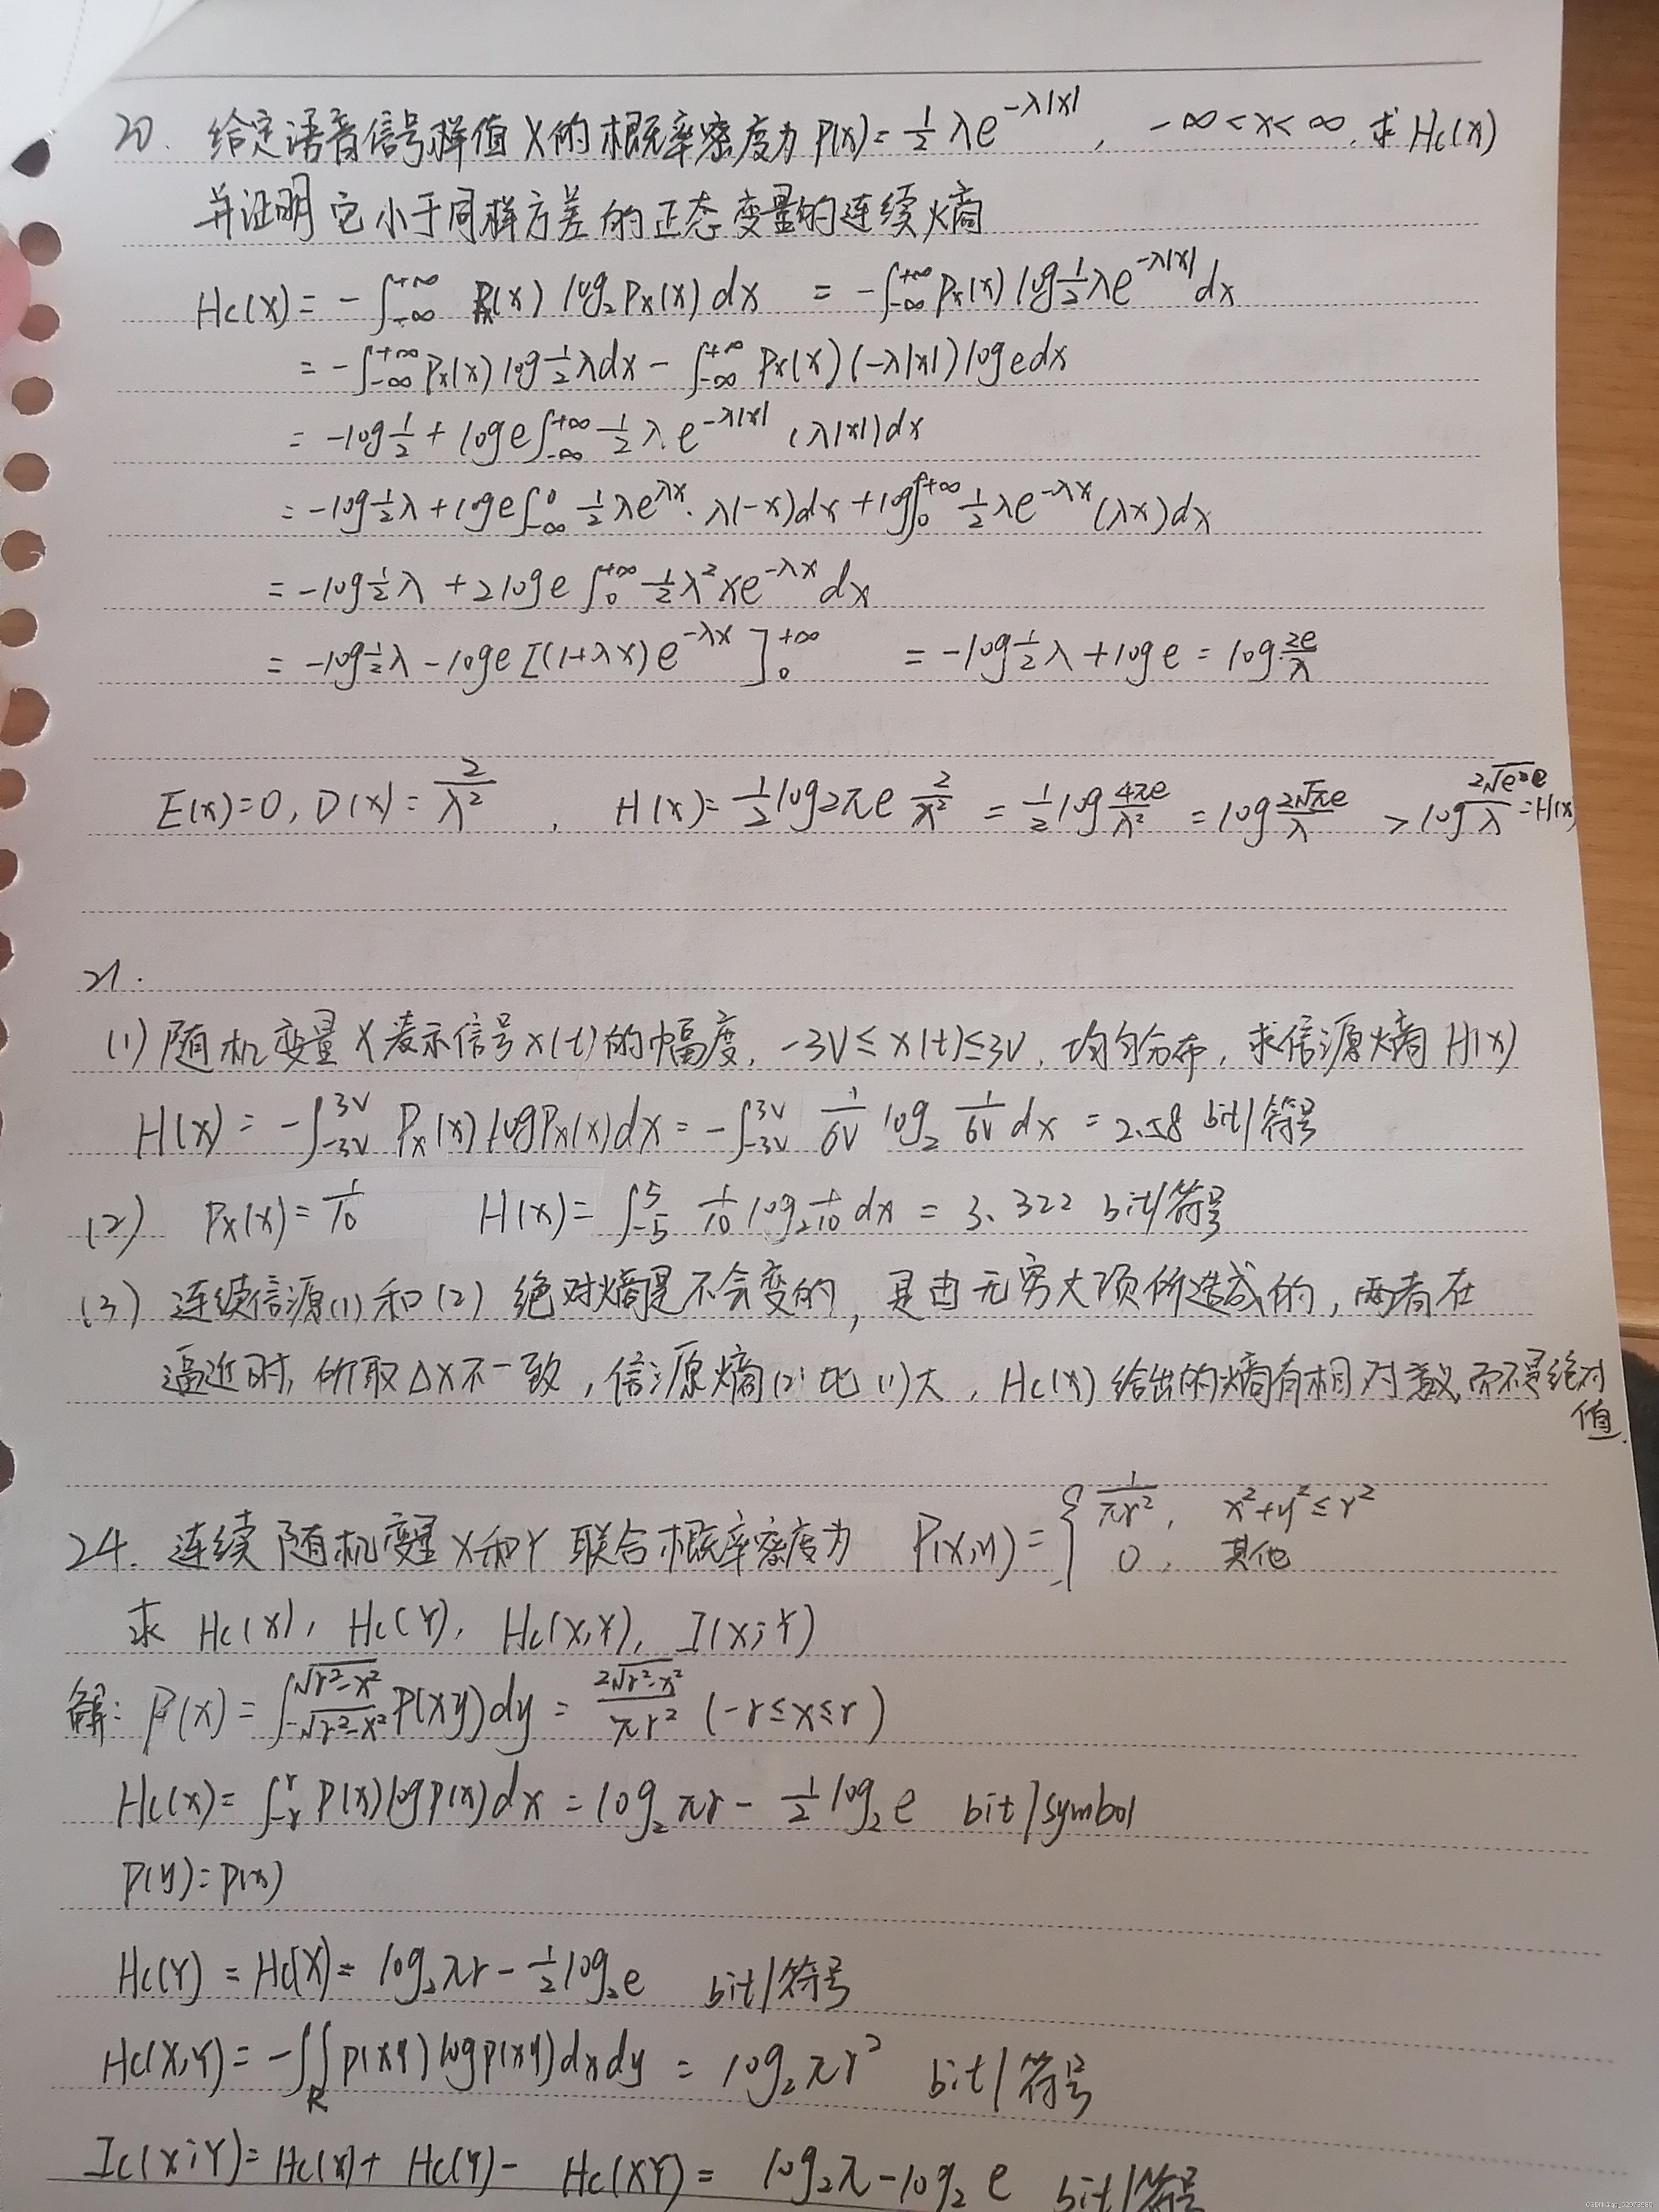 20. 给定语音信号样值X的概率密度为P(x)=½λe^{-λ|x|}, -∞<x<∞, 求Hc(x)
并证明它小于同样方差的正态变量的连续熵
Hc(X)=-∫_{-∞}^{+∞} Px(x) log₂Px(x)dx = -∫_{-∞}^{+∞} Px(x) log½λe^{-λ|x|}dx
= -∫_{-∞}^{+∞} Px(x) log½λdx - ∫_{-∞}^{+∞} Px(x)(-λ|x|)logedx
= -log½ + loge∫_{-∞}^{+∞} ½λe^{-λ|x|} (λ|x|)dx
= -log½λ + loge∫_{-∞}^{0} ½λe^{λx}·λ(-x)dx + log∫_{0}^{+∞} ½λe^{-λx}(λx)dx
= -log½λ + 2loge∫_{0}^{+∞} ½λ²xe^{-λx}dx
= -log½λ - loge[(1+λx)e^{-λx}]_{0}^{+∞} = -log½λ + loge = log 2e/λ
E(x)=0, D(x)=2/λ², H(x)=½log2πe 2/λ² = ½log 4πe/λ² = log 2√πe/λ > log 2√e·e/λ =H(x)
21.
(1) 随机变量X表示信号x(t)的幅度, -3V≤x(t)≤3V, 均匀分布, 求信源熵H(X)
H(X)=-∫_{-3V}^{3V} Px(x)logPx(x)dx = -∫_{-3V}^{3V} 1/6V log₂ 1/6V dx = 2.58 bit/符号
(2) Px(x)=1/10 H(x)=∫_{-5}^{5} 1/10 log₂ 1/10 dx = 3.322 bit/符号
(3) 连续信源(1)和(2) 绝对熵是不会变的, 是由无穷大项所造成的, 两者在
逼近时, 所取△X不一致, 信源熵(2)比(1)大, Hc(x)给出的熵有相对意义, 而不是绝对
值.
24. 连续随机变量X和Y联合概率密度为 P(x,y)={ 1/πr², x²+y²≤r²
0, 其他
求 Hc(X), Hc(Y), Hc(X,Y), I(X;Y)
解: P(x)=∫_{-√r²-x²}^{√r²-x²} P(xy)dy = 2√r²-x²/πr² (-r≤x≤r)
Hc(x)=∫_{-r}^{r} P(x)logP(x)dx = log₂πr - ½log₂e bit/symbol
P(y)=P(x)
Hc(Y)=Hc(X)=log₂πr-½log₂e bit/符号
Hc(X,Y)=-∫∫_R p(xy)logp(xy)dxdy = log₂πr² bit/符号
Ic(X;Y)=Hc(x)+Hc(Y)-Hc(XY)=log₂π-log₂e bit/符号